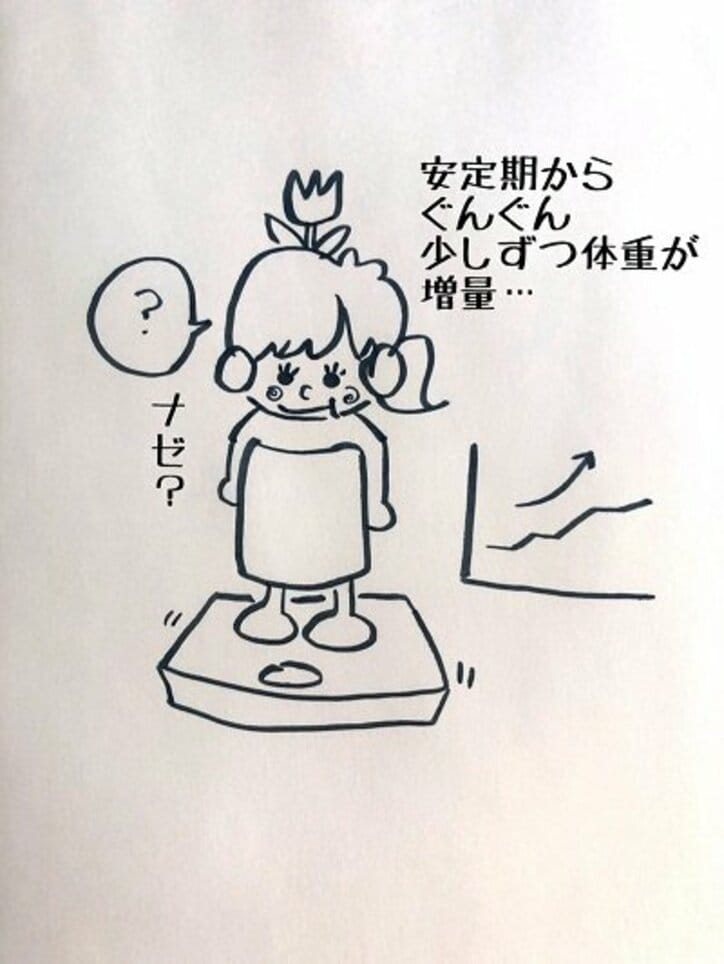 安定期から
ぐんぐん
少しずつ体重が
増量…
?
ナゼ?